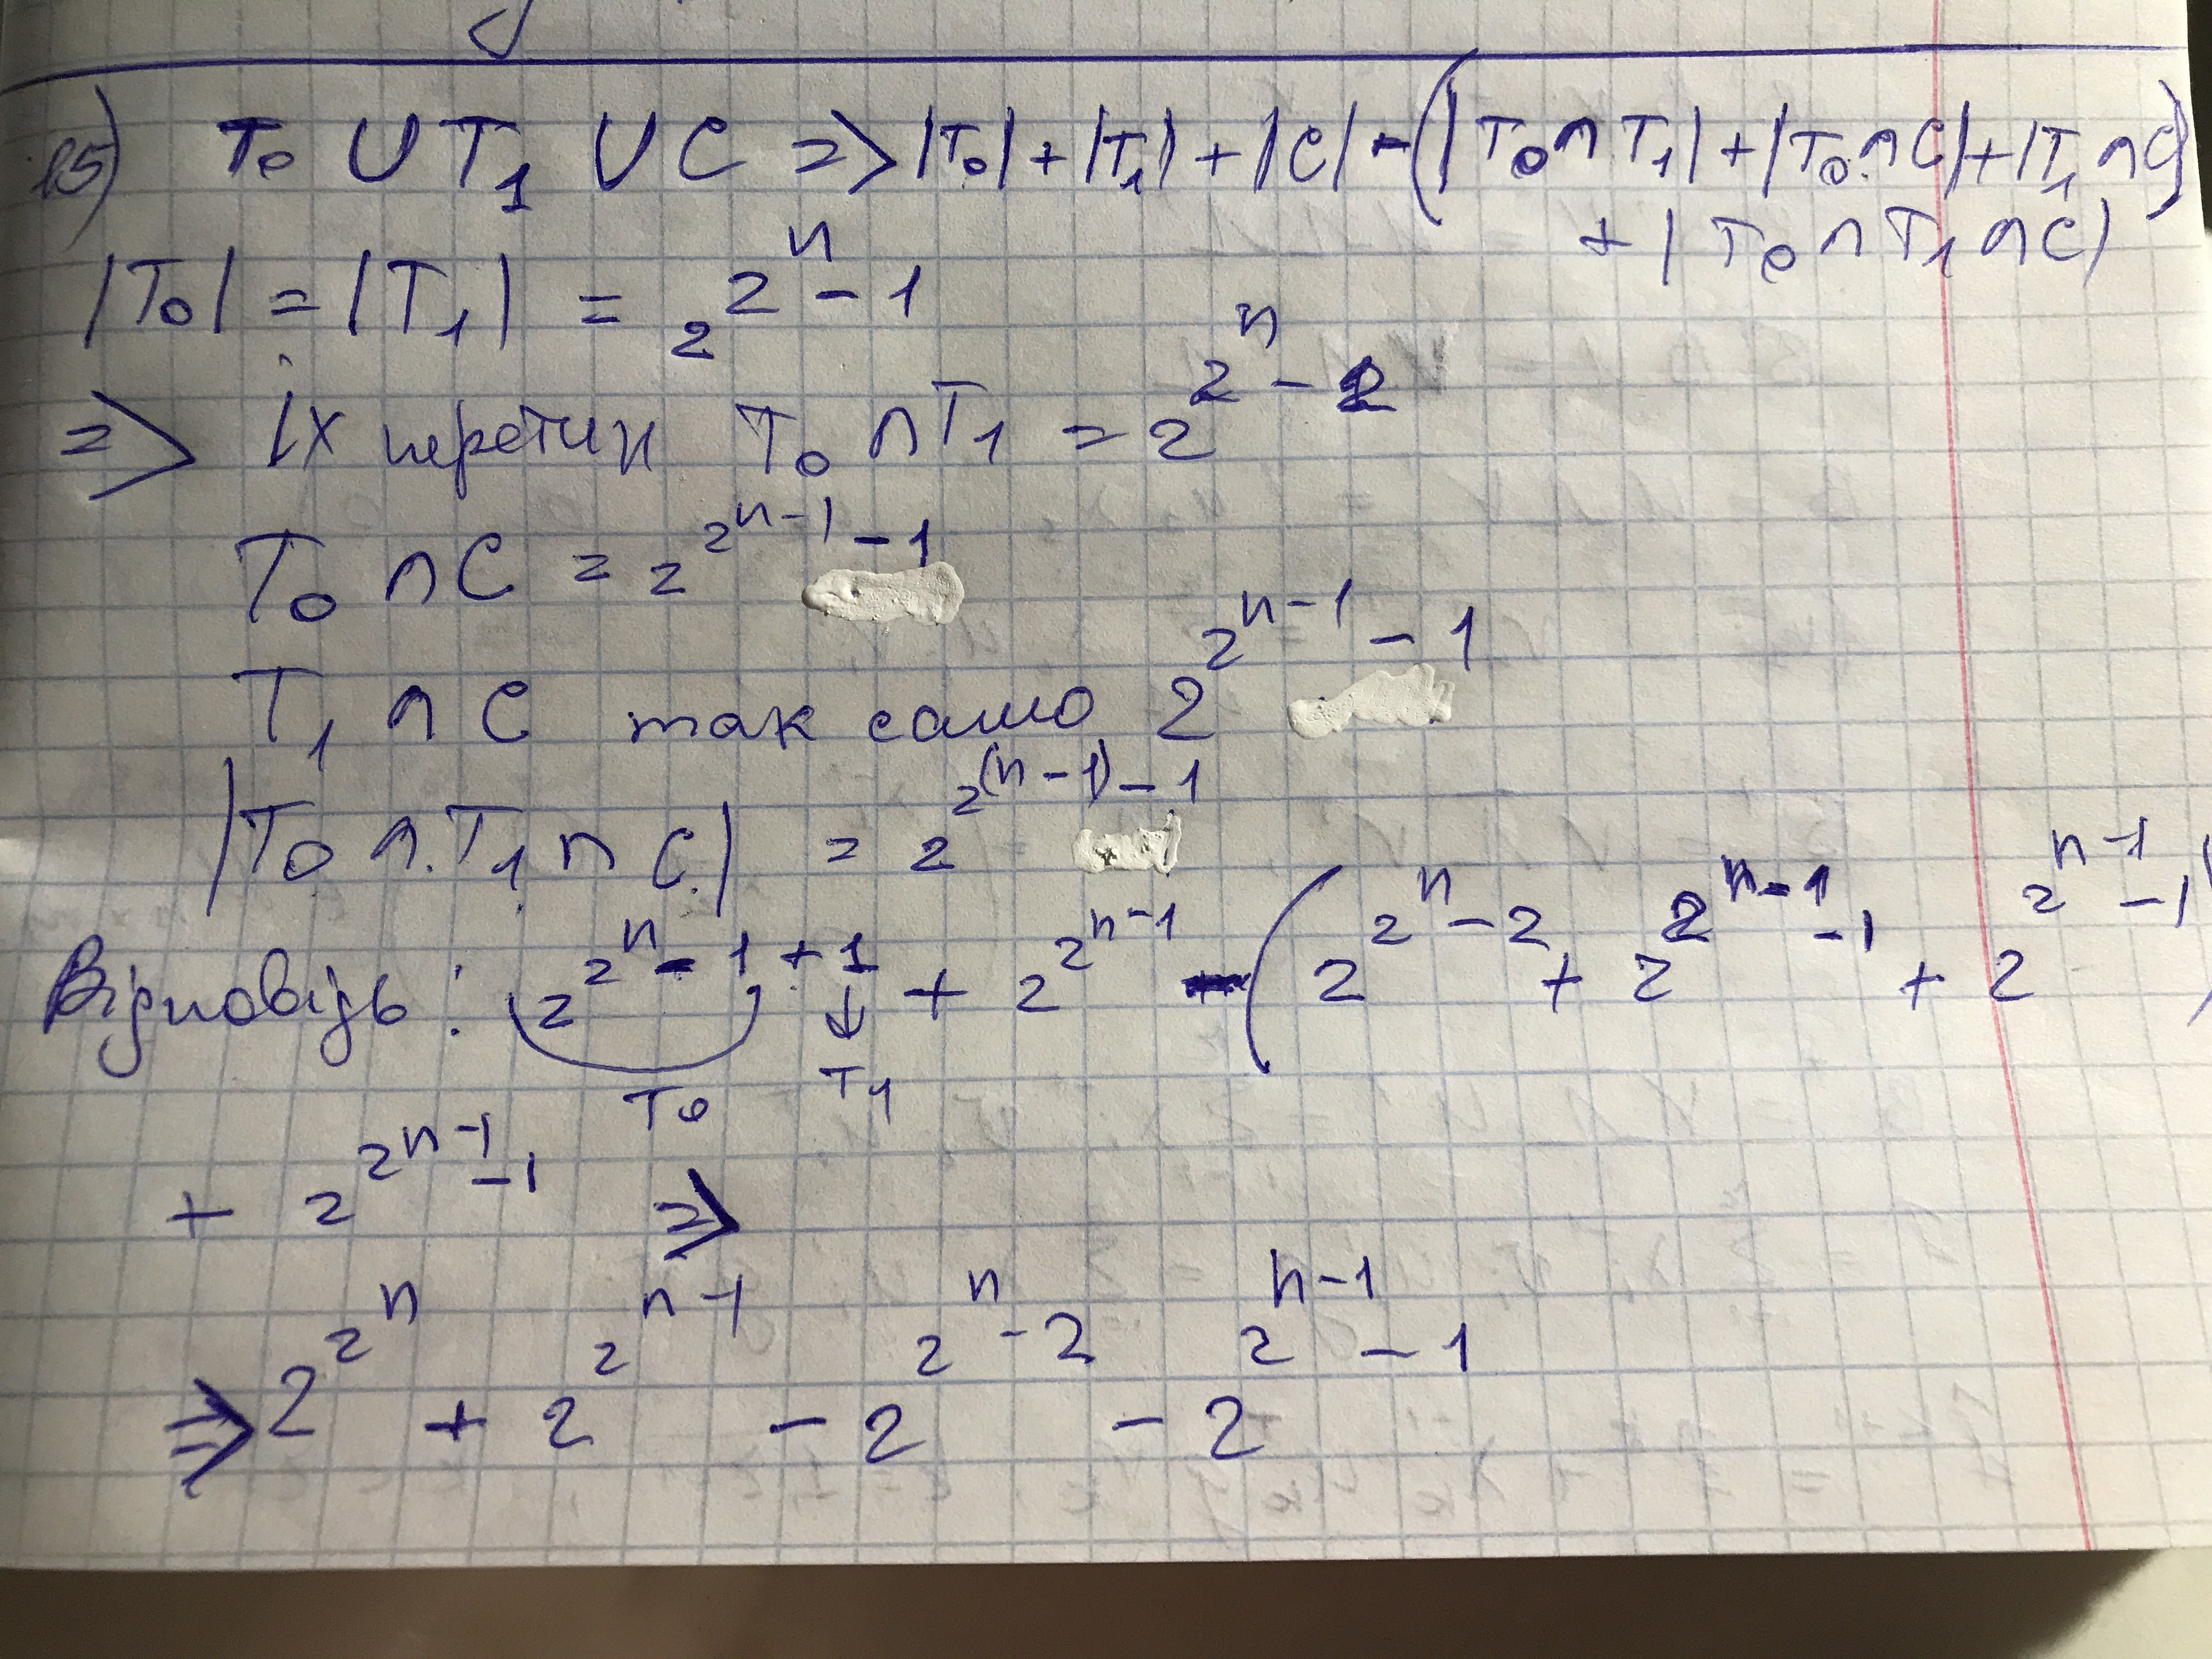 15) T₀ ∪ T₁ ∪ C => |T₀| + |T₁| + |C| - (|T₀∩T₁| + |T₀∩C| + |T₁∩C|)
+ |T₀∩T₁∩C|
|T₀| = |T₁| = 2^(2^n - 1)
=> Їх перетин T₀∩T₁ = 2^(2^n - 2)
T₀∩C = 2^(2^(n-1) - 1)
T₁∩C так само 2^(2^(n-1) - 1)
|T₀∩T₁∩C| = 2^(2^(n-1) - 1)
Відповідь: (2^(2^n - 1 + 1) + 2^(2^(n-1)) - (2^(2^n - 2) + 2^(2^(n-1) - 1) + 2^(2^(n-1) - 1))
T₀ T₁
+ 2^(2^(n-1) - 1) =>
=> 2^(2^n) + 2^(2^(n-1)) - 2^(2^n - 2) - 2^(2^(n-1) - 1)